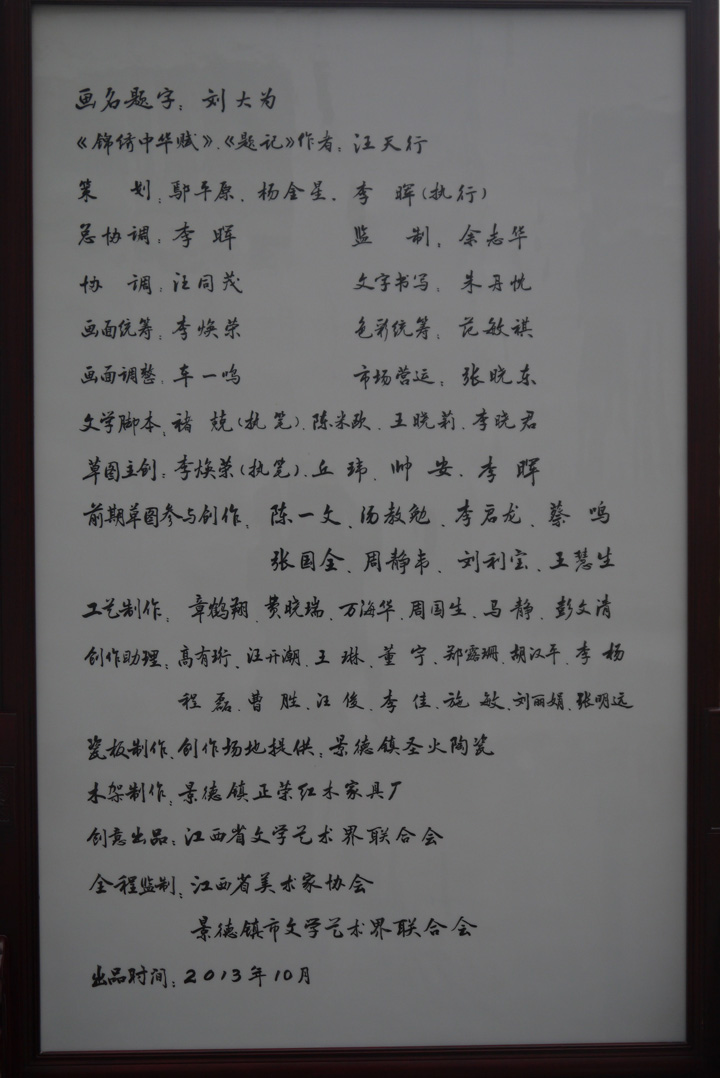 画名题字：刘大为
《锦绣中华赋》、《题记》作者：汪天行
策 划：鄢平原、杨金星、李 晖（执行）
总协调：李 晖 监 制：余志华
协 调：汪同茂 文字书写：朱丹忱
画面统筹：李焕荣 色彩统筹：范敏祺
画面调整：车一鸣 市场营运：张晓东
文学脚本：褚 兢（执笔）、陈米欧、王晓莉、李晓君
草图主创：李焕荣（执笔）、丘 玮、帅 安、李 晖
前期草图参与创作：陈一文、汤教勉、李启龙、蔡 鸣
张国全、周静韦、刘利宝、王慧生
工艺制作：章鹤翔、费晓瑞、万海华、周国生、马 静、彭文清
创作助理：高有珩、汪开潮、王 琳、董 宁、郑露珊、胡汉平、李 杨
程 磊、曹 胜、汪 俊、李 佳、施 敏、刘丽娟、张明远
瓷板制作、创作场地提供：景德镇圣火陶瓷
木架制作：景德镇正荣红木家具厂
创意出品：江西省文学艺术界联合会
全程监制：江西省美术家协会
景德镇市文学艺术界联合会
出品时间：2013年10月